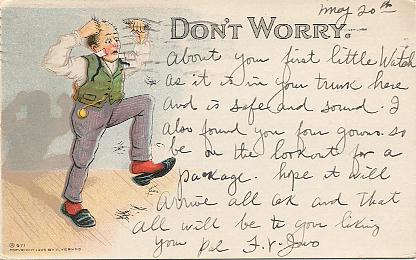 May 20th
DON'T WORRY.
about your first little Watch
as it is in your trunk here
and is safe and sound. I
also found you four gowns so
be on the lookout for a
package. hope it will
arrive all ok and that
all will be to your liking
Your pal
671
COPYRIGHT